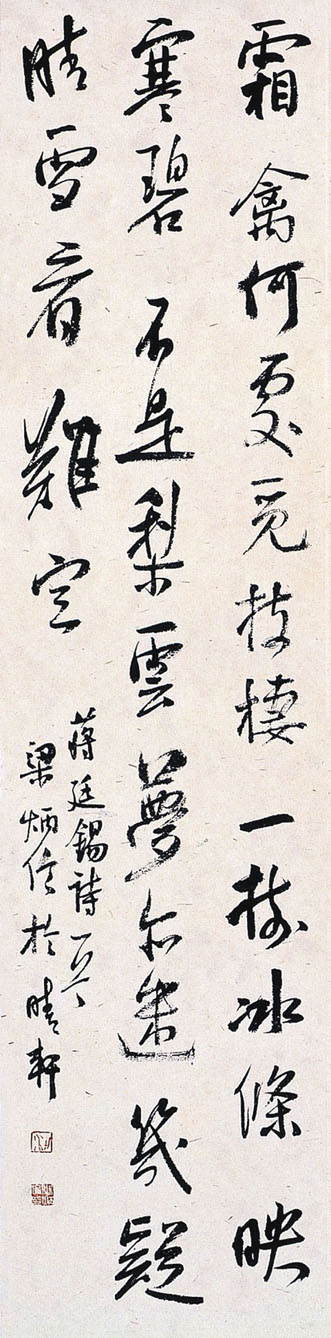 霜禽何處覓枝棲一樹冰條映
寒碧不是梨雲夢亦迷幾疑
晴雪看難定
蔣廷錫詩一首
梁炳信於晴軒